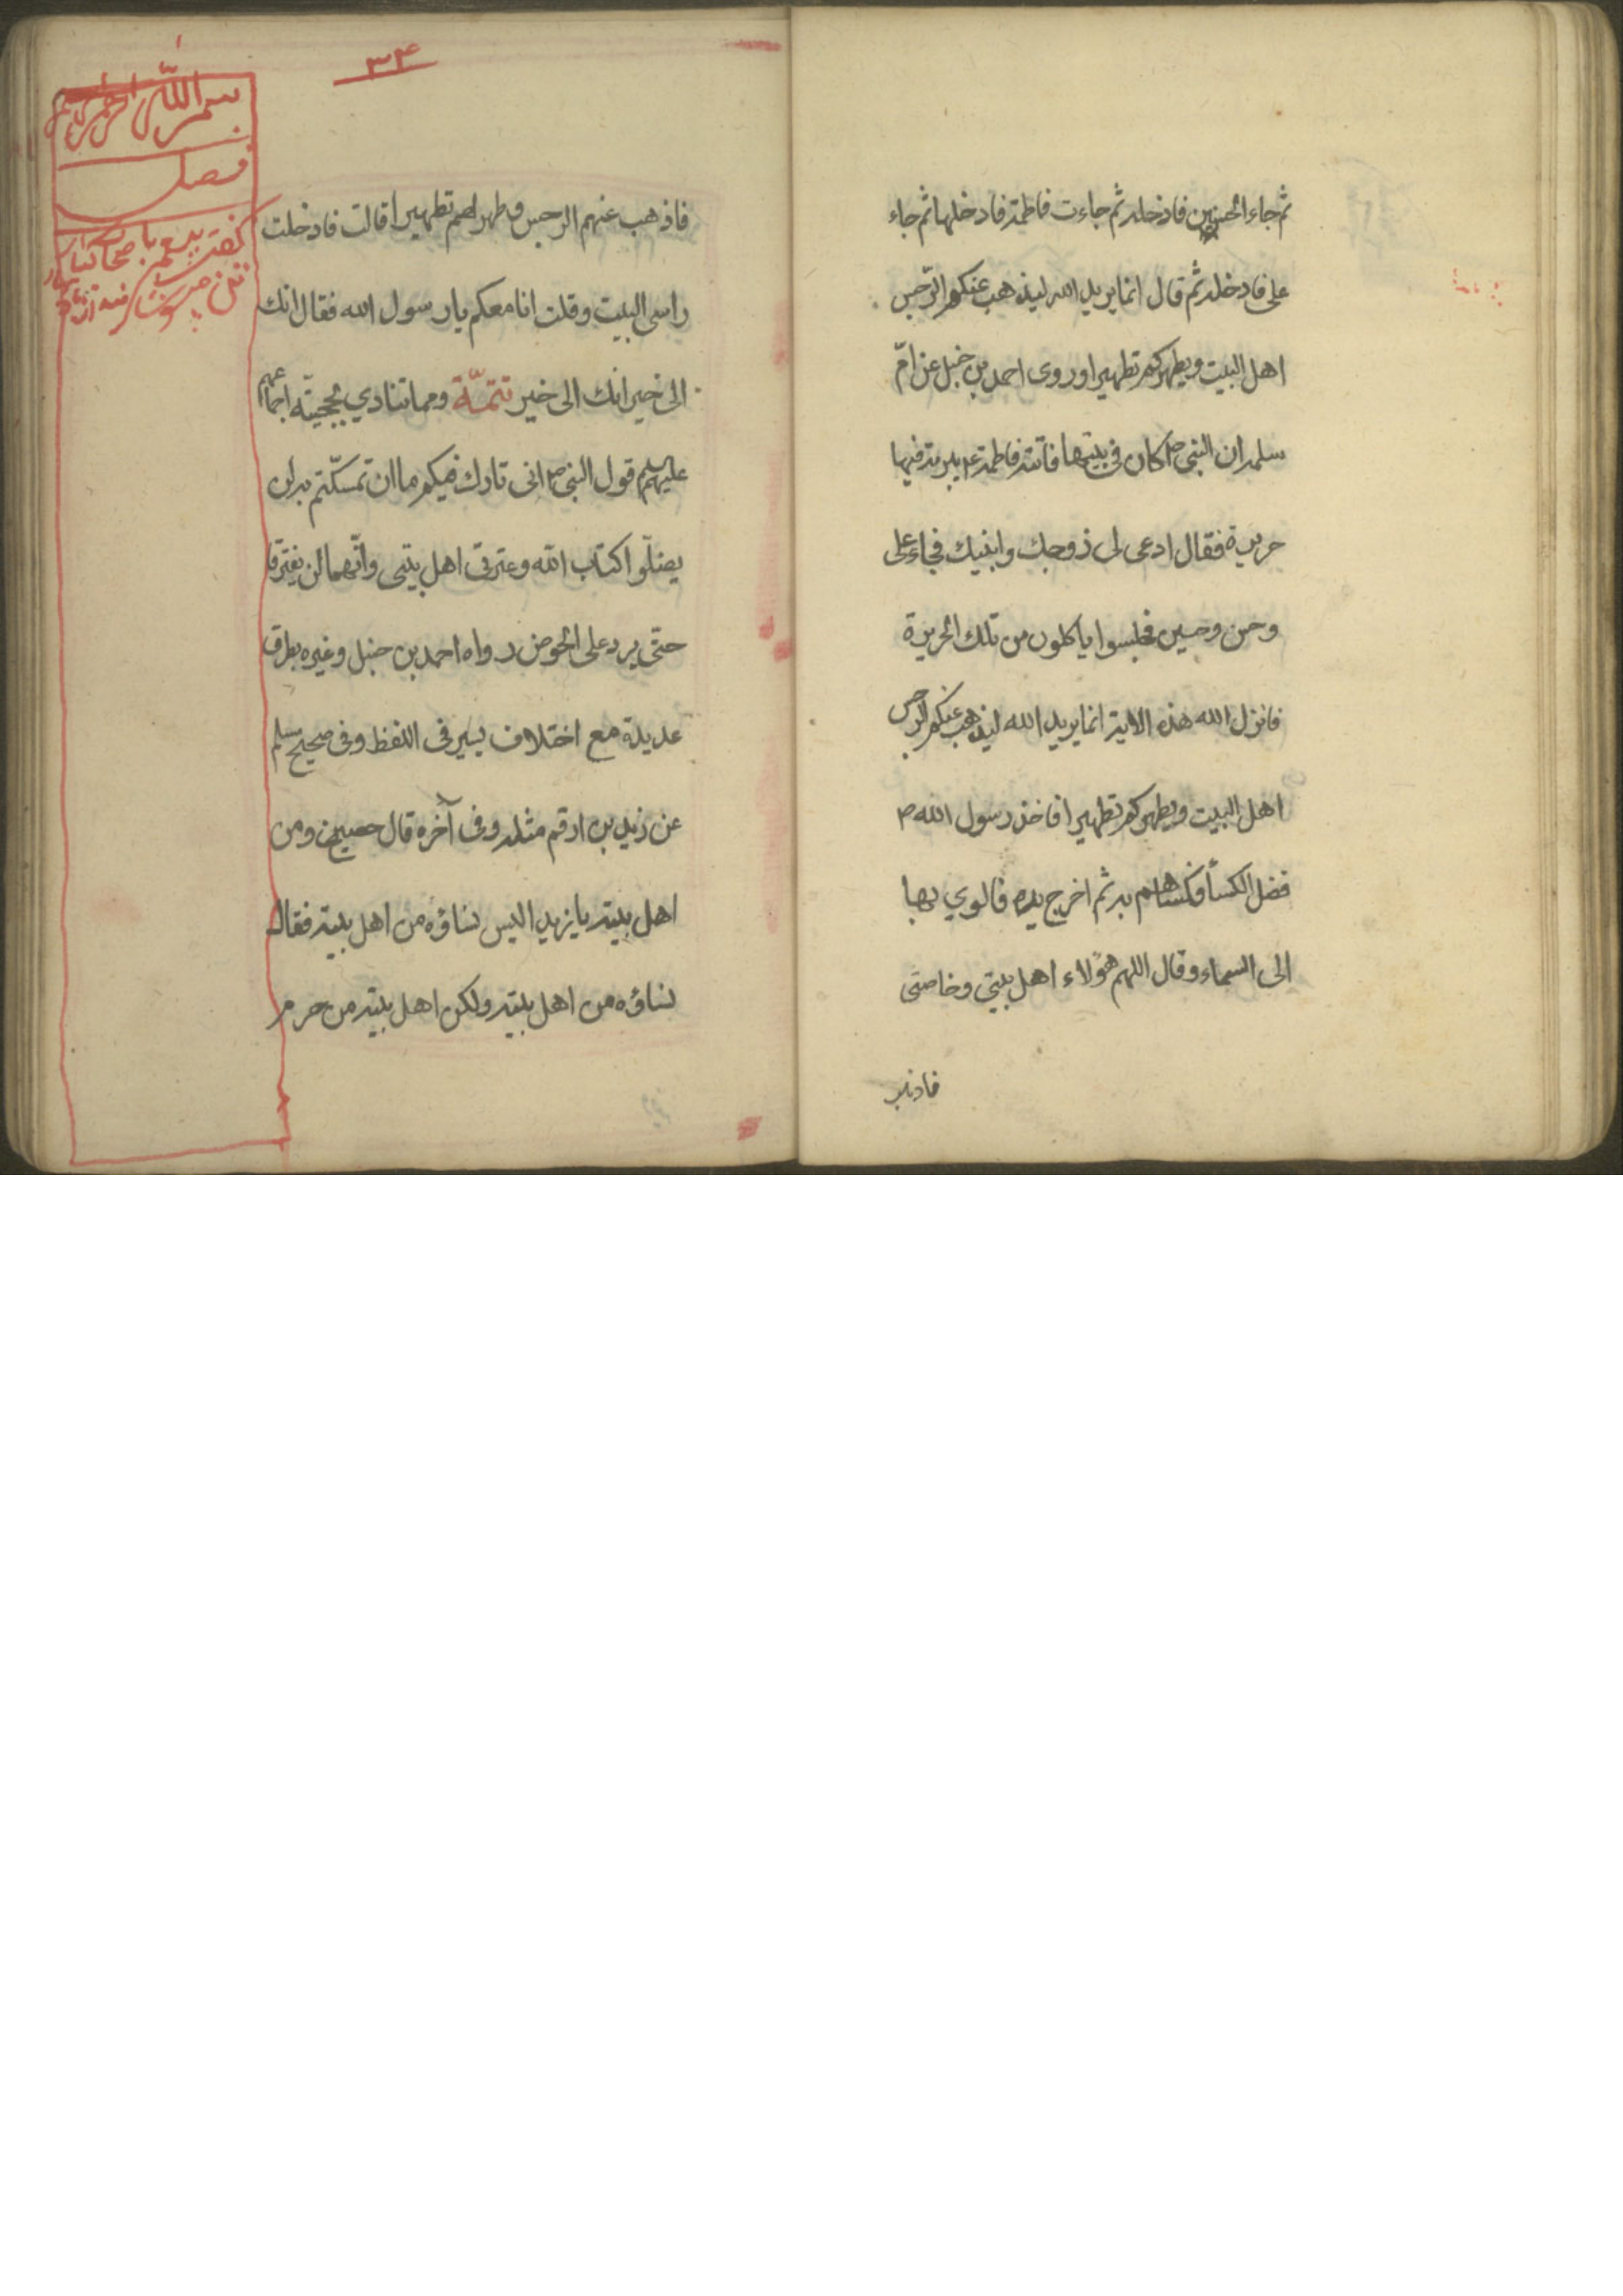 ثم جاء الحسين فادخله ثم جاءت فاطمة فادخلها ثم جاء
على فادخله ثم قال انما يريد الله ليذهب عنكم الرّجس
اهل البيت ويطهركم تطهيرا وروى احمد بن حنبل عن امّ
سلمه ان النبى ص كان فى بيتها فاتته فاطمة ع ببرمة فيها
حريرة فقال ادعى لى زوجك وابنيك فجاء على
وحسن وحسين فجلسوا ياكلون من تلك الحريرة
فانزل الله هذه الاية انما يريد الله ليذهب عنكم الرجس
اهل البيت ويطهركم تطهيرا فاخذ رسول الله ص
فضل الكسأ فكساهم به ثم اخرج يده فالوي بها
الى السماء وقال اللهم هؤلاء اهل بيتي وخاصتى
فاذهب
٣٤
فاذهب عنهم الرجس وطهرهم تطهيرا قالت فادخلت
راسى البيت وقلت انا معكم يا رسول الله فقال انك
الى خير انك الى خير تتمّة ومما تنادي بحجيّته اجماعهم
عليهم السلم قول النبى ص انى تارك فيكم ما ان تمسّكتم به لن
يضلّوا كتاب الله وعترتى اهل بيتى وانّهما لن يفترقا
حتّى يرد على الحوض رواه احمد بن حنبل وغيره بطرق
عديدة مع اختلاف يسير فى اللفظ وفى صحيح مسلم
عن زيد بن ارقم مثله وفى آخره قال حصين ومن
اهل بيته يا زيد اليس نساؤه من اهل بيته فقال
نساؤه من اهل بيته ولكن اهل بيته من حرم
بسم الله الرحمن الرحيم
فصل
گفت پيغمبر باصحاب كبار
تن مپوشانيد از باد بهار